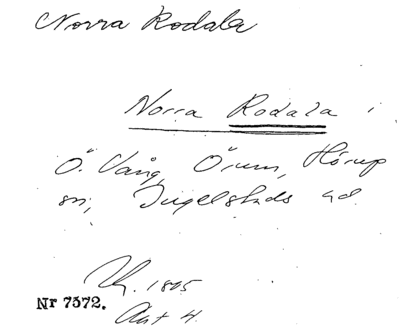 Norra Rodala
Norra Rodala i
Ö. Vång, Örum, Hörup
sn, Ingelstads hd.
Kh. 1805
Nr 7372.
Akt 4.